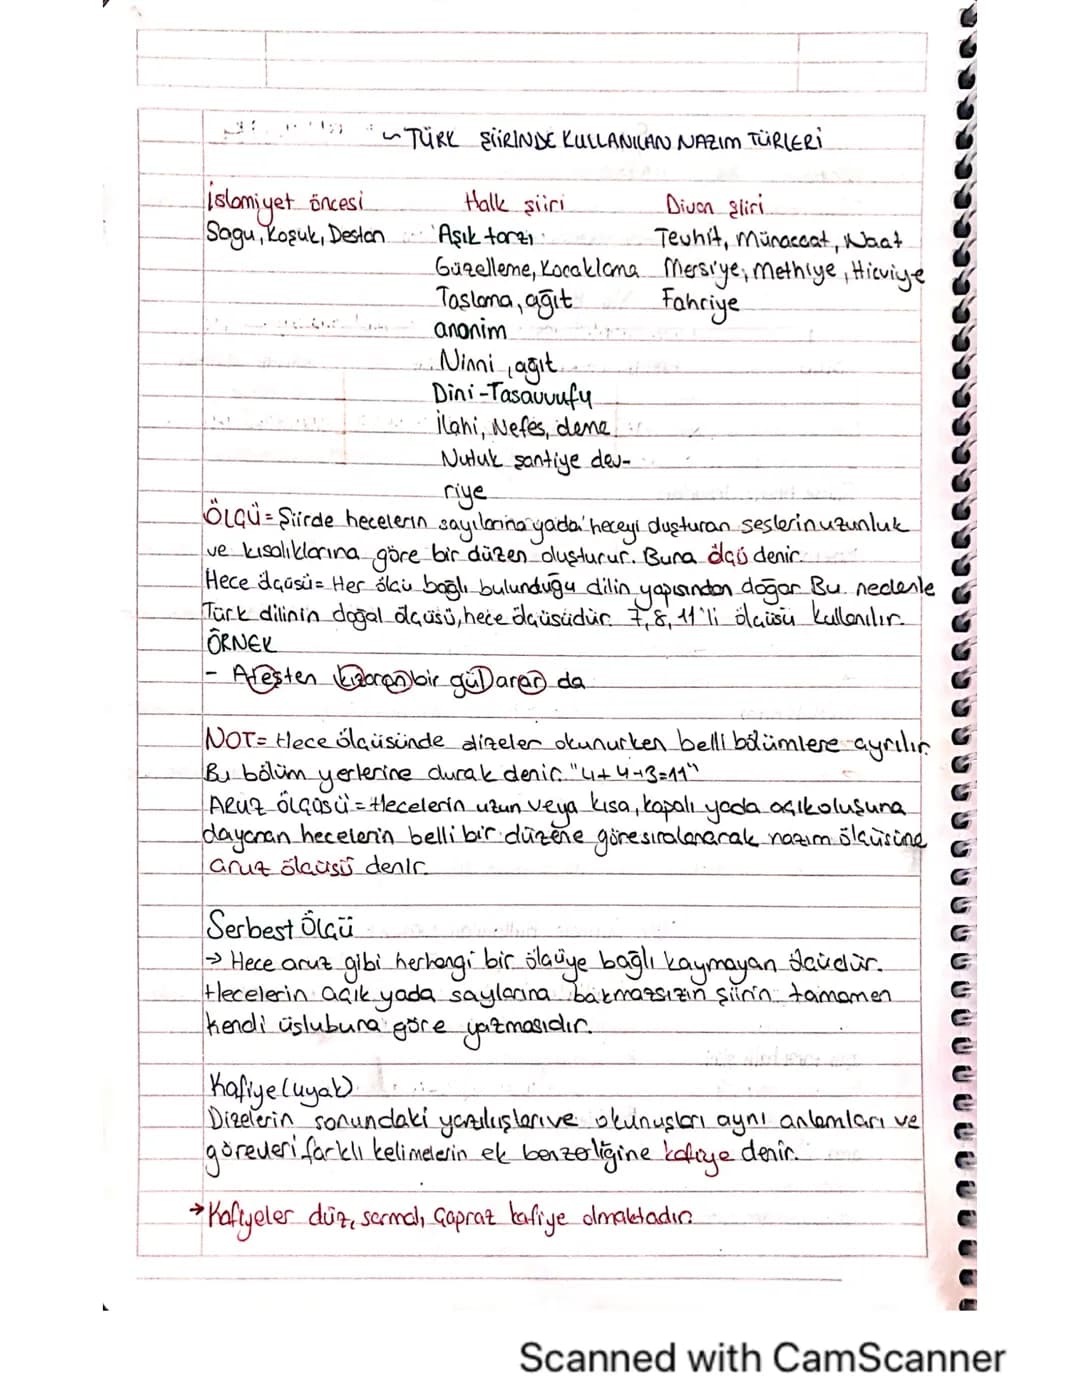 ~ TÜRK ŞİİRİNDE KULLANILAN NAZIM TÜRLERİ
İslamiyet öncesi Halk şiiri Divan şiiri
Sagu, Koşuk, Destan Aşık tarzı Tevhit, Münaccat, Naat
Güzelleme, Kocaklama Mersiye, Methiye, Hicviye
Taşlama, ağıt Fahriye
anonim
Ninni, ağıt
Dini-Tasavvufy
İlahi, Nefes, deme
Nutuk şantiye dev-
riye
ÖLÇÜ = Şiirde hecelerin sayılarına yada heceyi oluşturan seslerin uzunluk
ve kısalıklarına göre bir düzen oluşturur. Buna ölçü denir.
Hece ölçüsü = Her ölçü bağlı bulunduğu dilin yapısından doğar Bu nedenle
Türk dilinin doğal ölçüsü, hece ölçüsüdür. 7, 8, 11'li ölçüsü kullanılır.
ÖRNEK
- Ateşten kızaran bir gül arar da
NOT = Hece ölçüsünde dizeler okunurken belli bölümlere ayrılır.
Bu bölüm yerlerine durak denir. "4+4+3=11"
Aruz ÖLÇÜSÜ = Hecelerin uzun veya kısa, kapalı yada açık oluşuna
dayanan hecelerin belli bir düzene göre sıralanarak nazım ölçüsüne
aruz ölçüsü denir.
Serbest Ölçü
→ Hece aruz gibi herhangi bir ölçüye bağlı kaymayan ölçüdür.
Hecelerin açık yada saylarına bakmazsızın şiirin tamamen
kendi üslubuna göre yazmasıdır.
Kafiye (uyak)
Dizelerin sonundaki yazılışları ve okunuşları aynı anlamları ve
görevleri farklı kelimelerin ek benzerliğine kafiye denir.
→ Kafiyeler düz, sarmal, çapraz kafiye olmaktadır.
Scanned with CamScanner